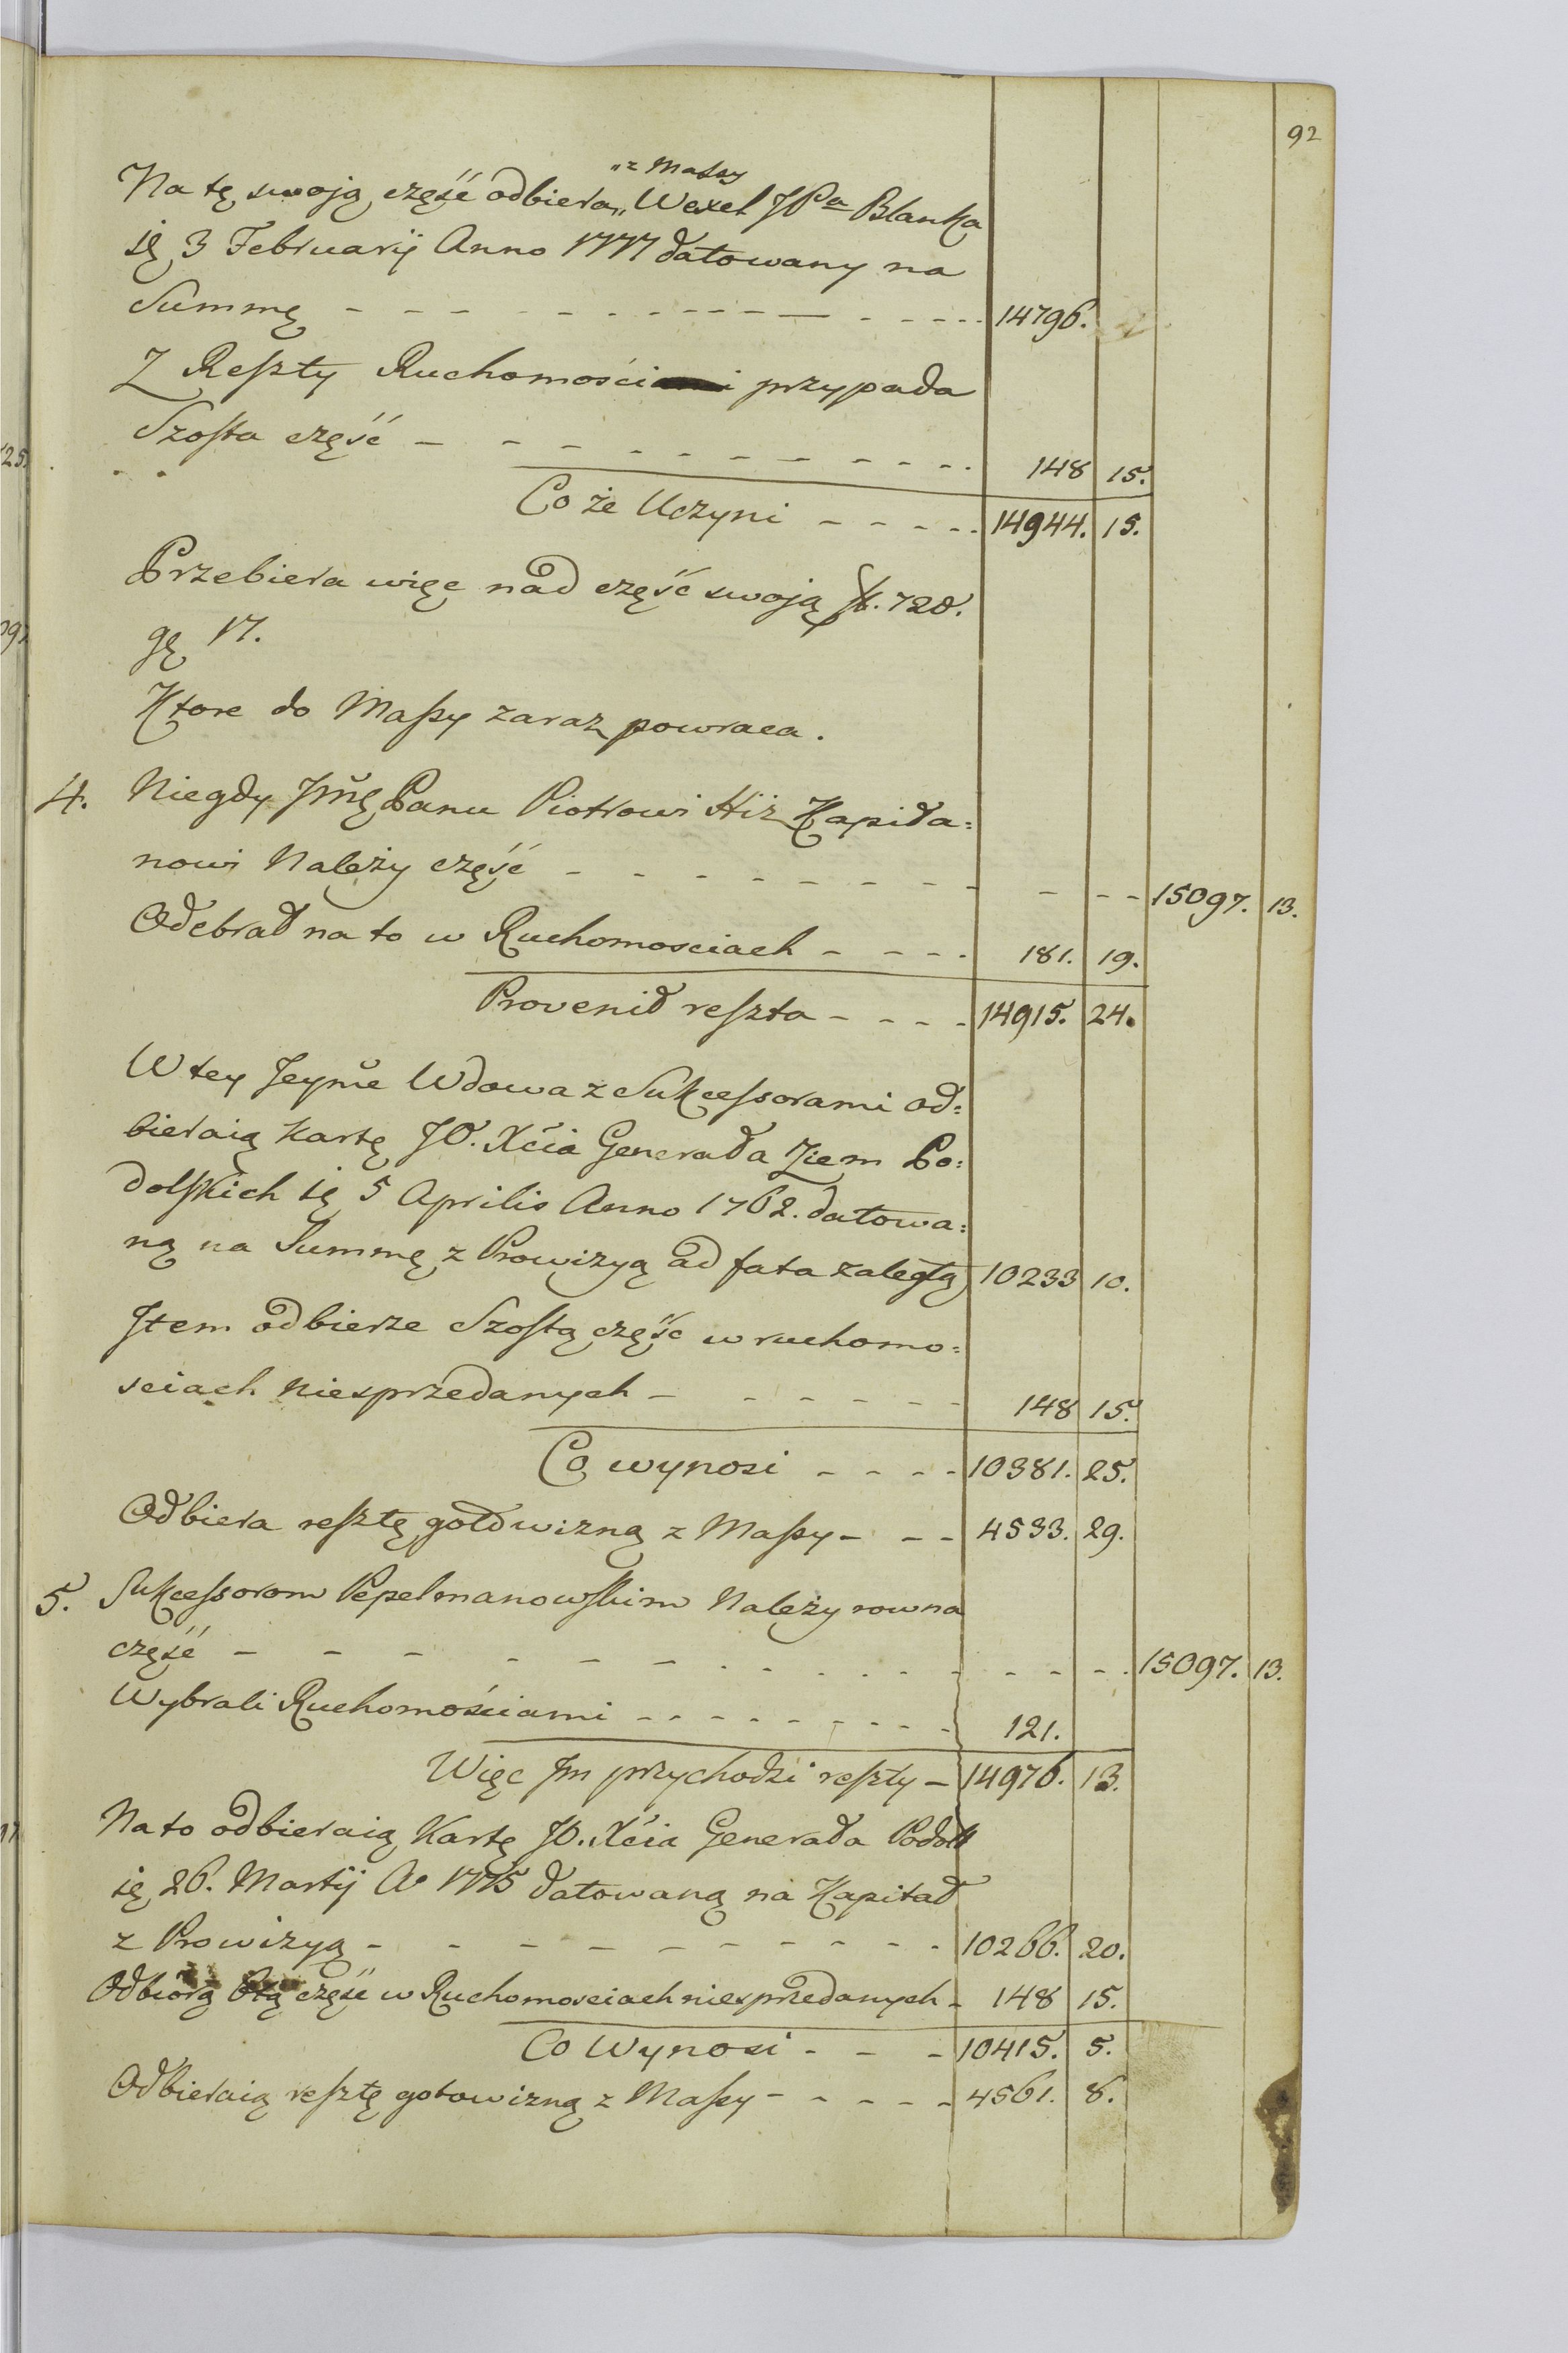 92
Na tę swoją część odbiera „z Massy Wexel JPa Blanka
ię 3 Februarij Anno 1777 datowany na
Summę - - - - - - - - - - 14796.
Z Reszty Ruchomości przypada
Szosta część - - - - - - - - - - 148 15.
Co że Uczyni - - - - - 14944. 15.
Przebiera więc nad część swoją 728.
gę 17.
Ktore do Massy zaraz powraca.
4. Niegdy Jmę Panu Piotrowi Hiż Kapita=
nowi Należy część - - - - - - - - - - - 15097. 13.
Odebrał na to w Ruchomosciach - - - - 181. 19.
Provenit reszta - - - - 14915. 24.
W tey Jeyme Wdowa z Sukcessorami od=
bieraią kartę JO. Xcia Generała Ziem Po=
dolskich ię 5 Aprilis Anno 1762. datowa=
ną na Summę z Prowizyą ad fata zaległą 10233 10.
Item odbierze Szostą część w ruchomo=
sciach niesprzedanych - - - - - - 148 15.
Co wynosi - - - - 10381. 25.
Odbiera resztę gotowizną z Massy - - - 4533. 29.
5. Sukcessorom Pepelmanowskim Należy rowna
część - - - - - - - - - - - - - - - 15097. 13.
Wybrali Ruchomościami - - - - - - - - - 121.
Więc Im przychodzi reszty - 14976. 13.
Na to odbieraią Kartę JO. Xcia Generała Podoll
ię 26. Martij Ao 1775 datowaną na Kapitał
z Prowizyą - - - - - - - - - - 10266. 20.
Odbiorą 6tą część w Ruchomosciach niesprzedanych - 148 15.
Co Wynosi - - - 10415. 5.
Odbieraią resztę gotowizną z Massy - - - - - 4561. 8.